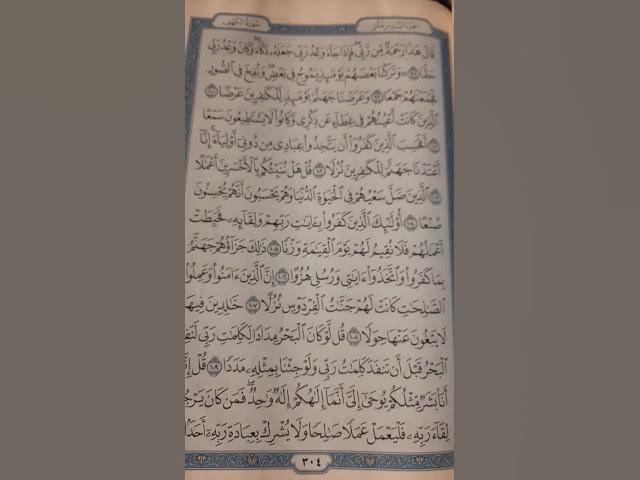 سورة الكهف
قَالَ هَٰذَا رَحْمَةٌ مِّن رَّبِّي فَإِذَا جَاءَ وَعْدُ رَبِّي جَعَلَهُ دَكَّاءَ وَكَانَ وَعْدُ رَبِّي
حَقًّا ٩٨ وَتَرَكْنَا بَعْضَهُمْ يَوْمَئِذٍ يَمُوجُ فِي بَعْضٍ وَنُفِخَ فِي الصُّورِ
فَجَمَعْنَاهُمْ جَمْعًا ٩٩ وَعَرَضْنَا جَهَنَّمَ يَوْمَئِذٍ لِّلْكَافِرِينَ عَرْضًا ١٠٠
الَّذِينَ كَانَتْ أَعْيُنُهُمْ فِي غِطَاءٍ عَن ذِكْرِي وَكَانُوا لَا يَسْتَطِيعُونَ سَمْعًا
١٠١ أَفَحَسِبَ الَّذِينَ كَفَرُوا أَن يَتَّخِذُوا عِبَادِي مِن دُونِي أَوْلِيَاءَ إِنَّا
أَعْتَدْنَا جَهَنَّمَ لِلْكَافِرِينَ نُزُلًا ١٠٢ قُلْ هَلْ نُنَبِّئُكُم بِالْأَخْسَرِينَ أَعْمَالًا
١٠٣ الَّذِينَ ضَلَّ سَعْيُهُمْ فِي الْحَيَاةِ الدُّنْيَا وَهُمْ يَحْسَبُونَ أَنَّهُمْ يُحْسِنُونَ
صُنْعًا ١٠٤ أُولَٰئِكَ الَّذِينَ كَفَرُوا بِآيَاتِ رَبِّهِمْ وَلِقَائِهِ فَحَبِطَتْ
أَعْمَالُهُمْ فَلَا نُقِيمُ لَهُمْ يَوْمَ الْقِيَامَةِ وَزْنًا ١٠٥ ذَٰلِكَ جَزَاؤُهُمْ جَهَنَّمُ
بِمَا كَفَرُوا وَاتَّخَذُوا آيَاتِي وَرُسُلِي هُزُوًا ١٠٦ إِنَّ الَّذِينَ آمَنُوا وَعَمِلُوا
الصَّالِحَاتِ كَانَتْ لَهُمْ جَنَّاتُ الْفِرْدَوْسِ نُزُلًا ١٠٧ خَالِدِينَ فِيهَا
لَا يَبْغُونَ عَنْهَا حِوَلًا ١٠٨ قُل لَّوْ كَانَ الْبَحْرُ مِدَادًا لِّكَلِمَاتِ رَبِّي لَنَفِدَ
الْبَحْرُ قَبْلَ أَن تَنفَدَ كَلِمَاتُ رَبِّي وَلَوْ جِئْنَا بِمِثْلِهِ مَدَدًا ١٠٩ قُلْ إِنَّمَا
أَنَا بَشَرٌ مِّثْلُكُمْ يُوحَىٰ إِلَيَّ أَنَّمَا إِلَٰهُكُمْ إِلَٰهٌ وَاحِدٌ فَمَن كَانَ يَرْجُو
لِقَاءَ رَبِّهِ فَلْيَعْمَلْ عَمَلًا صَالِحًا وَلَا يُشْرِكْ بِعِبَادَةِ رَبِّهِ أَحَدًا
٣٠٤